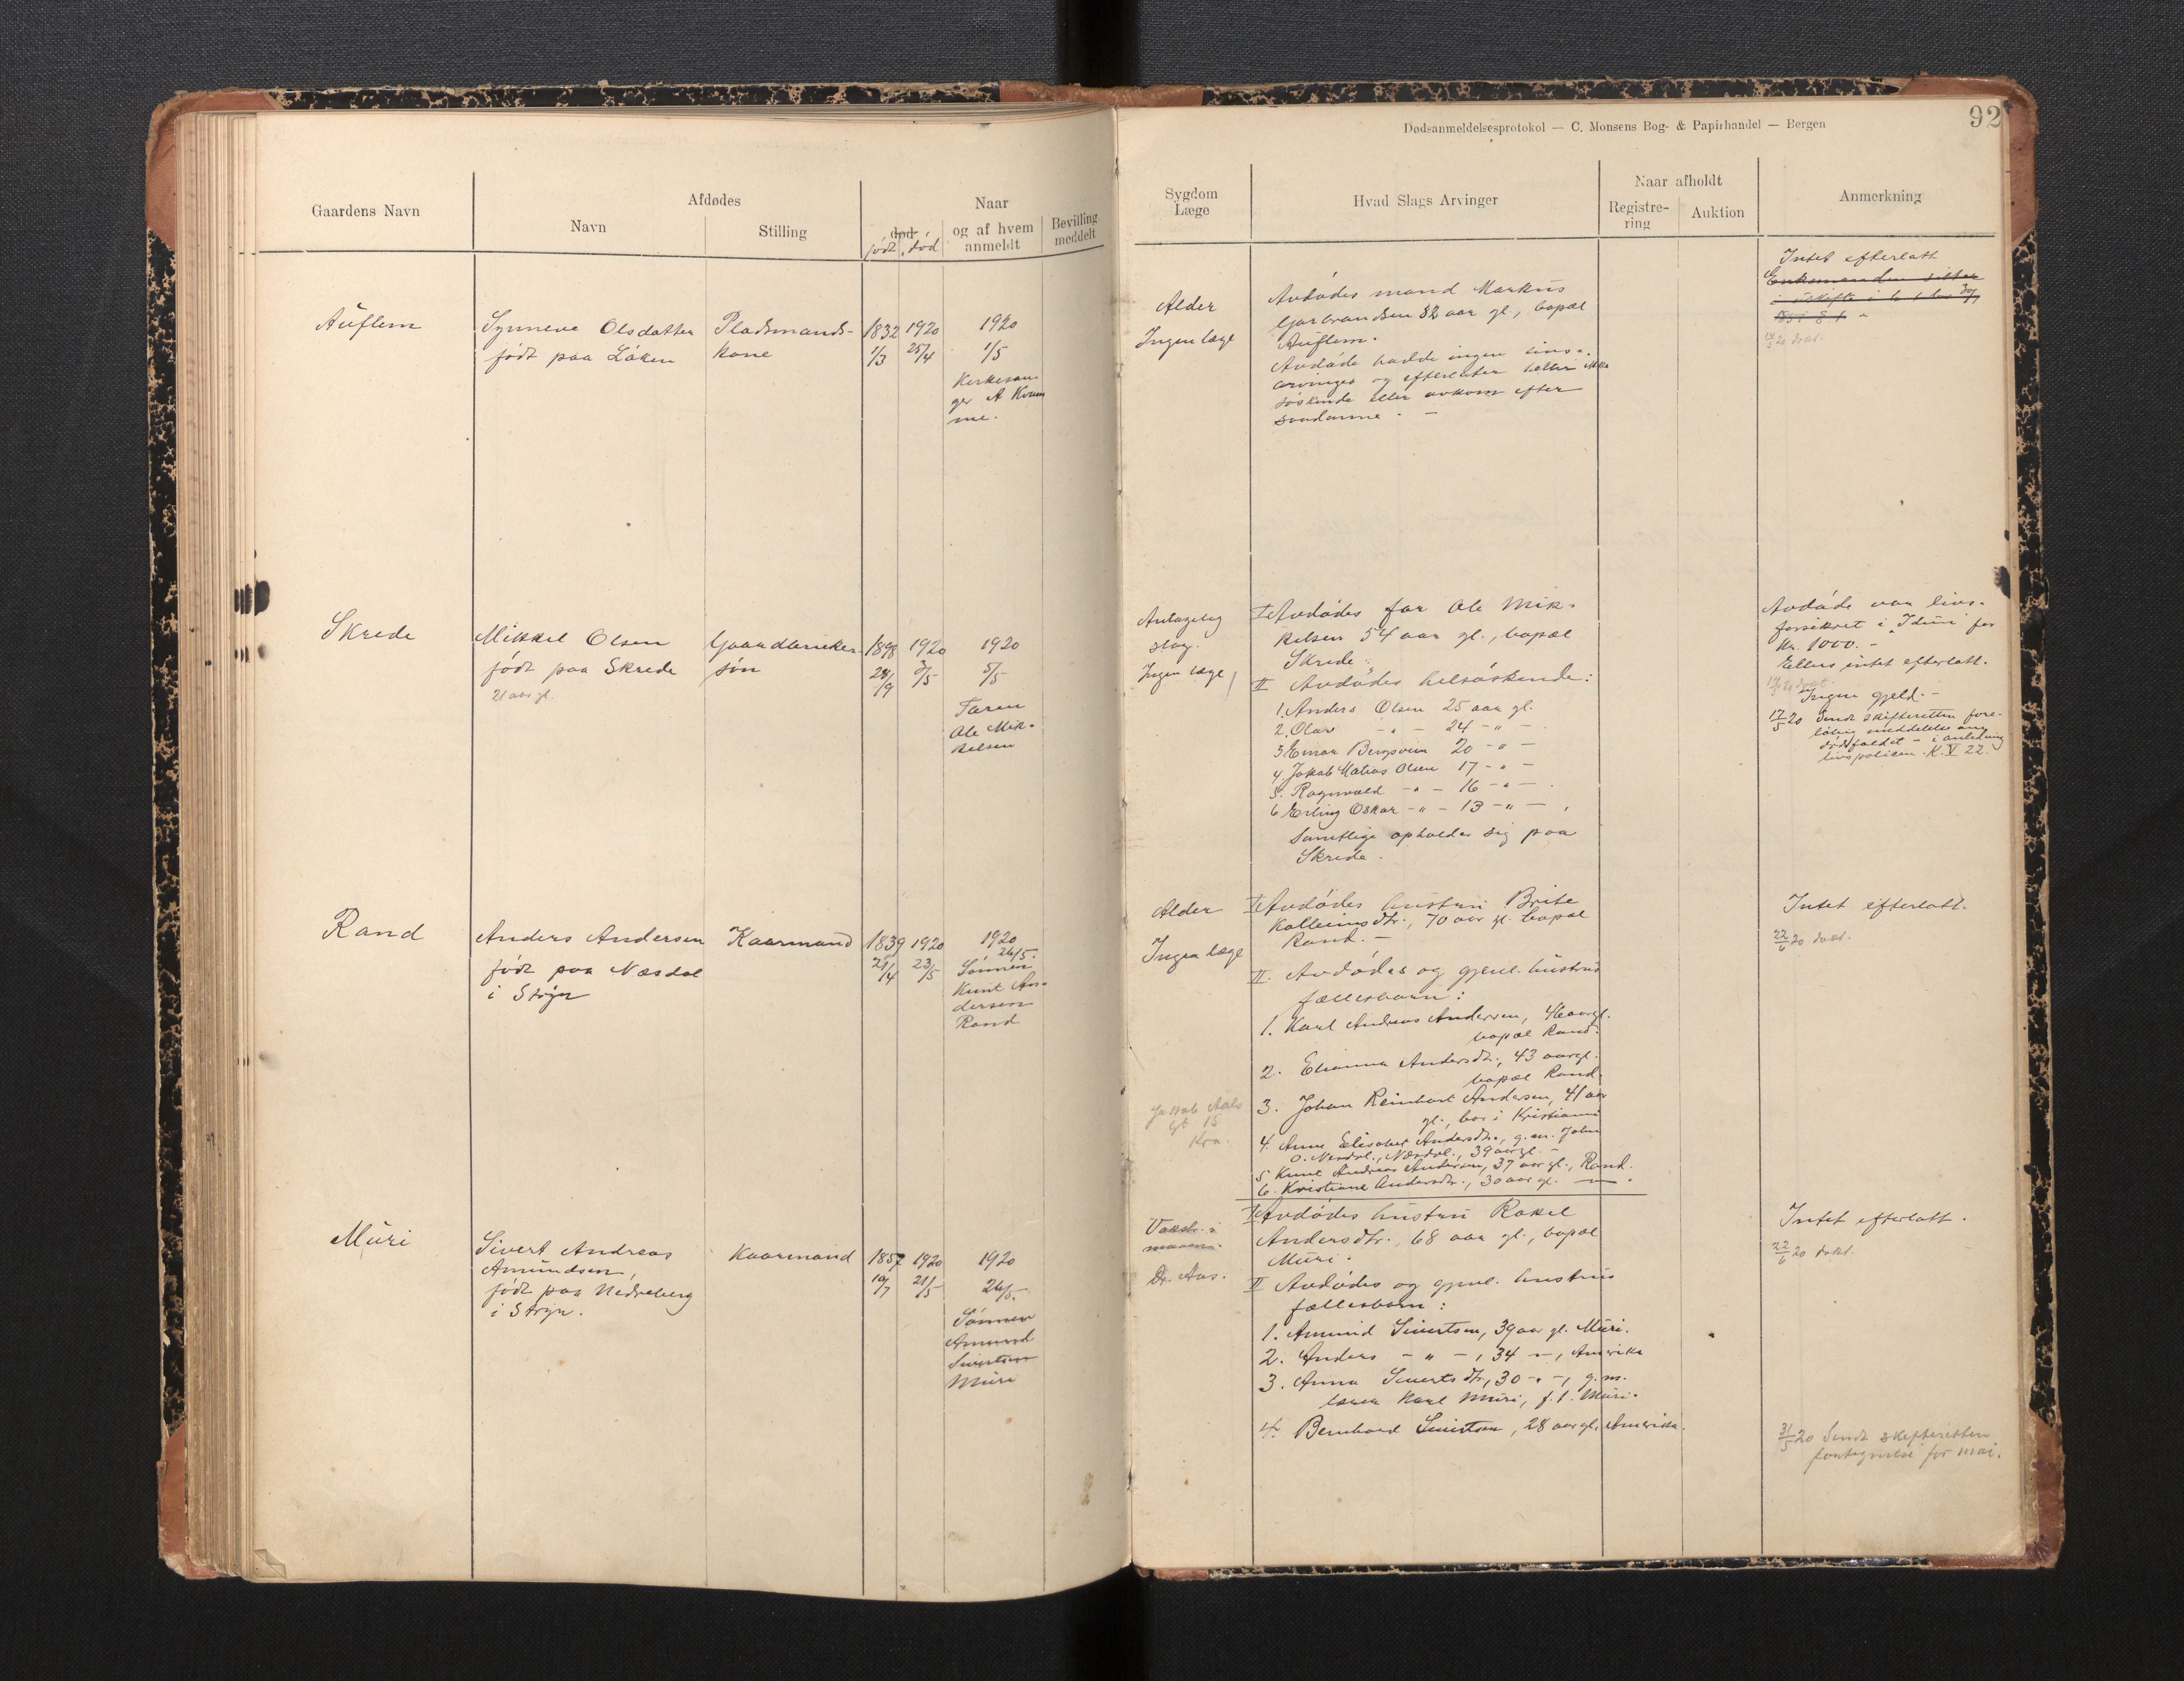 92
Dødsanmeldelsesprotokol — C. Monsens Bog- & Papirhandel — Bergen
Gaardens Navn
Afdødes
Navn
Stilling
død
født død
Naar
og af hvem
anmeldt
Bevilling
meddelt
Sygdom
Læge
Hvad Slags Arvinger
Naar afholdt
Registre-
ring
Auktion
Anmerkning
Auflem
Synneve Olsdatter
født paa Løken
Pladsmands-
kone
1832
1/3
1920
25/4
1920
1/5
Kirkesan-
ger A Kvam
me.
Alder
Ingen læge
Avdødes mand Markus
Gjerbrandsen 82 aar gl., bopæl
Auflem.
Avdøde hadde ingen livs-
arvinger og efterlater heller ikke
søskende eller avkom efter
saadanne. —
Intet efterlatt
Enkemanden sitter
14/5 20 dokt.
Skrede
Mikkel Olsen
født paa Skrede
21 aar gl.
Gaardbruker-
søn
1898
28/9
1920
3/5
1920
5/5
Faren
Ole Mik-
kelsen
Antagelig
slag.
Ingen læge
I Avdødes far Ole Mik-
kelsen 54 aar gl., bopæl
Skrede.
II Avdødes helsøskende:
1. Anders Olsen 25 aar gl.
2. Olav - " - 24 - " -
3 Einar Bergsvein 20 - " -
4. Jakob Matias Olsen 17 - " -
5. Ragnvald - " - 16 - " -
6 Erling Oskar - " - 13 - " -
Samtlige opholder sig paa
Skrede.
Avdøde var livs-
forsikret i "Idun" for
Kr. 1000. -
Ellers intet efterlatt.
Ingen gjeld. -
17/5 20 Sendt skifteretten fore-
løbig meddelelse om
dødsfaldet - i anledning
livspolicen. K. V 22.
Rand
Anders Andersen
født paa Næsdal
i Stryn
Kaarmand
1839
21/4
1920
23/5
1920
26/5.
Sønnen
Knut An-
dersen
Rand
Alder
Ingen læge
I Avdødes hustru Brite
Kolbeinsdtr., 70 aar gl. bopæl
Rand. —
II. Avdødes og gjenl. hustrus
fællesbarn:
1. Karl Andreas Andersen, 46 aar gl.
bopæl Rand.
2. Elianna Andersdtr., 43 aar gl.
bopæl Rand.
3. Johan Reinhart Andersen, 41 aar
gl., bor i Kristiania
4. Anne Elisabet Andersdtr., g. m. John
O. Nesdal, Næsdal, 39 aar gl. -
5 Knut Andreas Andersen, 37 aar gl., Rand.
6. Kristiane Andersdtr., 30 aar gl. — " .
Jakob Aals
gt 15
Kra.
Intet efterlatt.
22/6 20 dokt.
Muri
Sivert Andreas
Amundsen,
født paa Nedreberg
i Stryn.
Kaarmand
1857
10/7
1920
21/5
1920
26/5.
Sønnen
Amund
Sivertsen
Muri
Vækst i
maven.
Dr. Aas.
I Avdødes hustru Rakel
Andersdtr., 68 aar gl., bopæl
Muri.
II Avdødes og gjenl. hustrus
fællesbarn:
1. Amund Sivertsen, 39 aar gl. Muri.
2. Anders - " -, 34 - " -, Amerika
3. Anna Sivertsdtr., 30 - " -, g. m.
lærer Karl Muri, f. t. Muri.
4. Bernhard Sivertsen, 28 aar gl. Amerika.
Intet efterlatt.
22/6 20 dokt.
31/5 20 Sendt skifteretten
fortegnelse for mai.